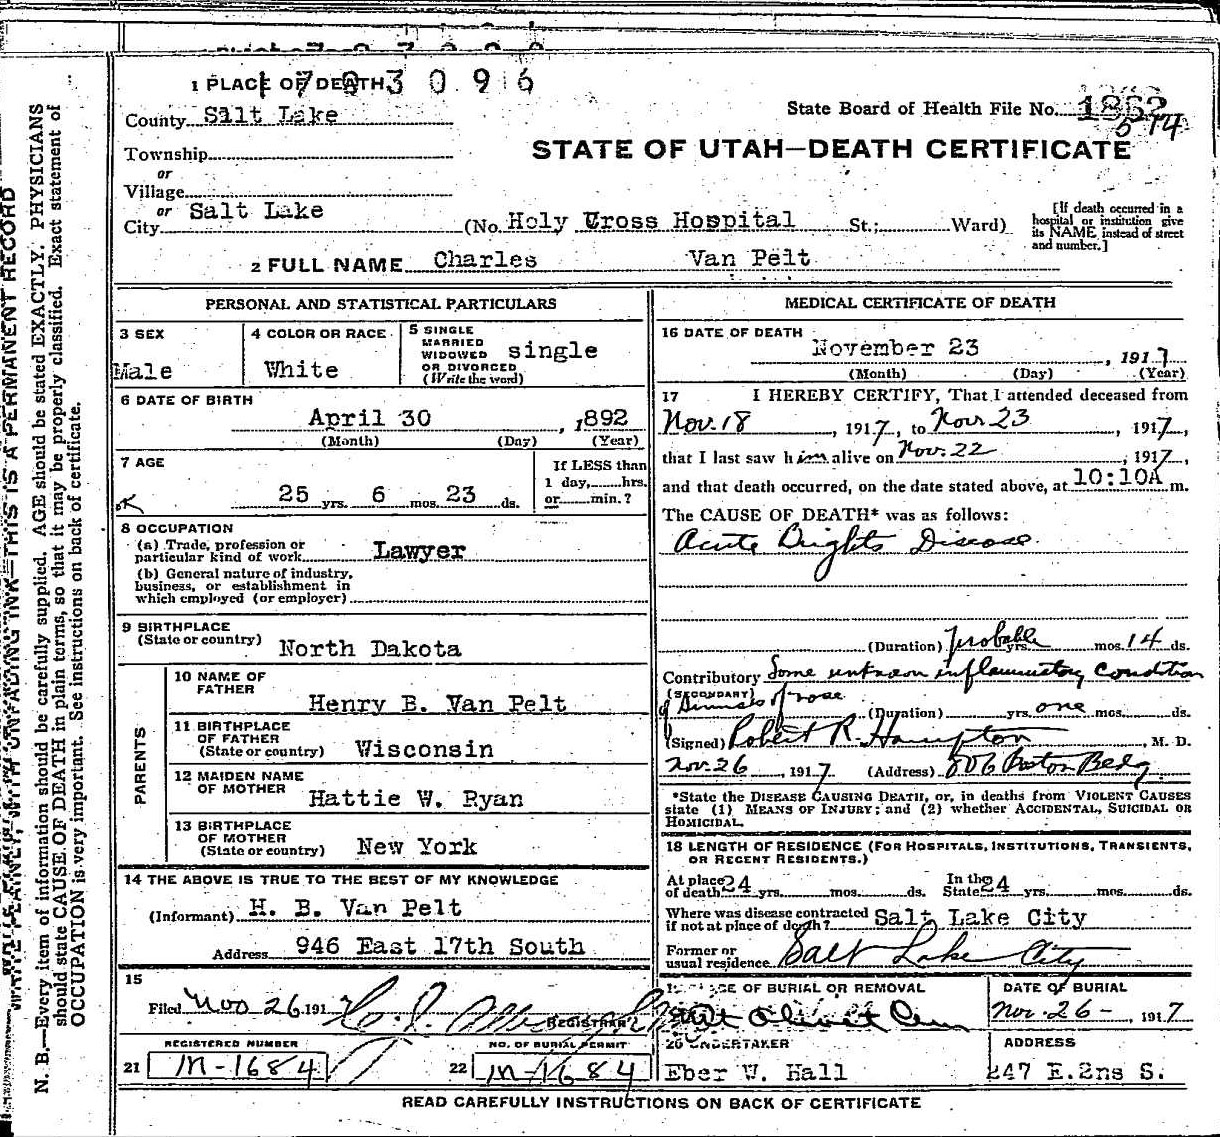 1 PLACE OF DEATH
1 7 0 3 0 9 6
County Salt Lake
State Board of Health File No. 1862
574
Township
or
Village
or
City Salt Lake
STATE OF UTAH—DEATH CERTIFICATE
(No. Holy Cross Hospital St.; Ward)
[If death occurred in a hospital or institution give its NAME instead of street and number.]
2 FULL NAME Charles Van Pelt
PERSONAL AND STATISTICAL PARTICULARS
3 SEX
Male
4 COLOR OR RACE
White
5 SINGLE
MARRIED
WIDOWED
OR DIVORCED
(Write the word)
single
6 DATE OF BIRTH
April 30, 1892
(Month) (Day) (Year)
7 AGE
25 yrs. 6 mos. 23 ds.
If LESS than
1 day, hrs.
or min.?
8 OCCUPATION
(a) Trade, profession or
particular kind of work Lawyer
(b) General nature of industry,
business, or establishment in
which employed (or employer)
9 BIRTHPLACE
(State or country) North Dakota
PARENTS
10 NAME OF
FATHER
Henry B. Van Pelt
11 BIRTHPLACE
OF FATHER
(State or country) Wisconsin
12 MAIDEN NAME
OF MOTHER
Hattie W. Ryan
13 BIRTHPLACE
OF MOTHER
(State or country) New York
14 THE ABOVE IS TRUE TO THE BEST OF MY KNOWLEDGE
(Informant) H. B. Van Pelt
Address 946 East 17th South
15
Filed Nov 26, 1917
REGISTRAR
REGISTERED NUMBER
21 M-1684
NO. OF BURIAL PERMIT
22 M-1684
MEDICAL CERTIFICATE OF DEATH
16 DATE OF DEATH
November 23, 1917
(Month) (Day) (Year)
17 I HEREBY CERTIFY, That I attended deceased from
Nov. 18, 1917, to Nov. 23, 1917,
that I last saw him alive on Nov. 22, 1917,
and that death occurred, on the date stated above, at 10:10A m.
The CAUSE OF DEATH* was as follows:
Acute Brights Disease
(Duration) probable yrs. mos. 14 ds.
Contributory Some unknown inflammatory condition
(SECONDARY)
of Sinuses of nose
(Duration) yrs. one mos. ds.
(Signed) Robert R. Hampton, M. D.
Nov. 26, 1917 (Address) 806 Boston Bldg
*State the DISEASE CAUSING DEATH, or, in deaths from VIOLENT CAUSES
state (1) MEANS OF INJURY; and (2) whether ACCIDENTAL, SUICIDAL OR
HOMICIDAL.
18 LENGTH OF RESIDENCE (FOR HOSPITALS, INSTITUTIONS, TRANSIENTS,
OR RECENT RESIDENTS.)
At place
of death 24 yrs. mos. ds.
In the
State 24 yrs. mos. ds.
Where was disease contracted
if not at place of death? Salt Lake City
Former or
usual residence Salt Lake City
19 PLACE OF BURIAL OR REMOVAL
Mt Olivet Cem
DATE OF BURIAL
Nov. 26 — , 1917
20 UNDERTAKER
Eber W. Hall
ADDRESS
247 E.2ns S.
READ CAREFULLY INSTRUCTIONS ON BACK OF CERTIFICATE
WRITE PLAINLY, WITH UNFADING INK—THIS IS A PERMANENT RECORD
N. B.—Every item of information should be carefully supplied. AGE should be stated EXACTLY. PHYSICIANS
should state CAUSE OF DEATH in plain terms, so that it may be properly classified. Exact statement of
OCCUPATION is very important. See instructions on back of certificate.